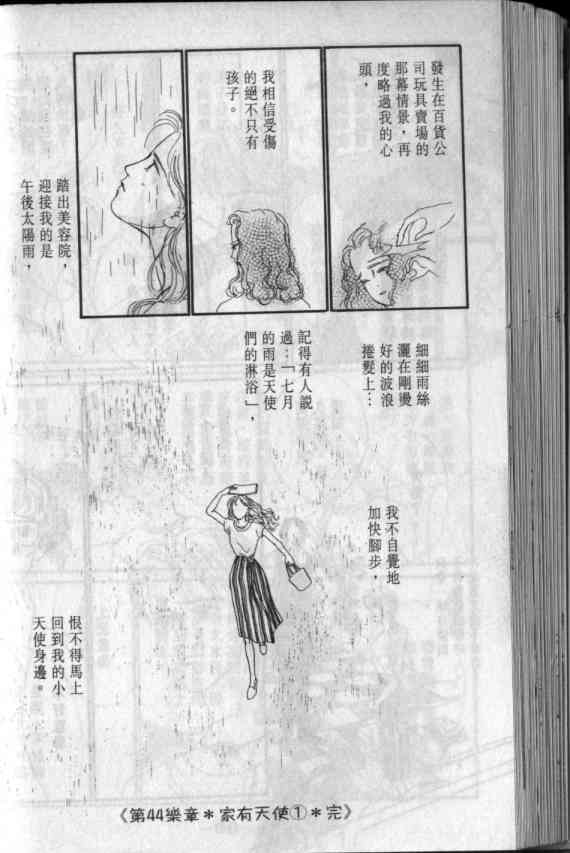 發生在百貨公
司玩具賣場的
那幕情景，再
度略過我的心
頭，
我相信受傷
的絕不只有
孩子。
踏出美容院，
迎接我的是
午後太陽雨，
細細雨絲
灑在剛燙
好的波浪
捲髮上…
記得有人說
過：「七月
的雨是天使
們的淋浴」，
我不自覺地
加快腳步，
恨不得馬上
回到我的小
天使身邊。
《第44樂章＊家有天使①＊完》